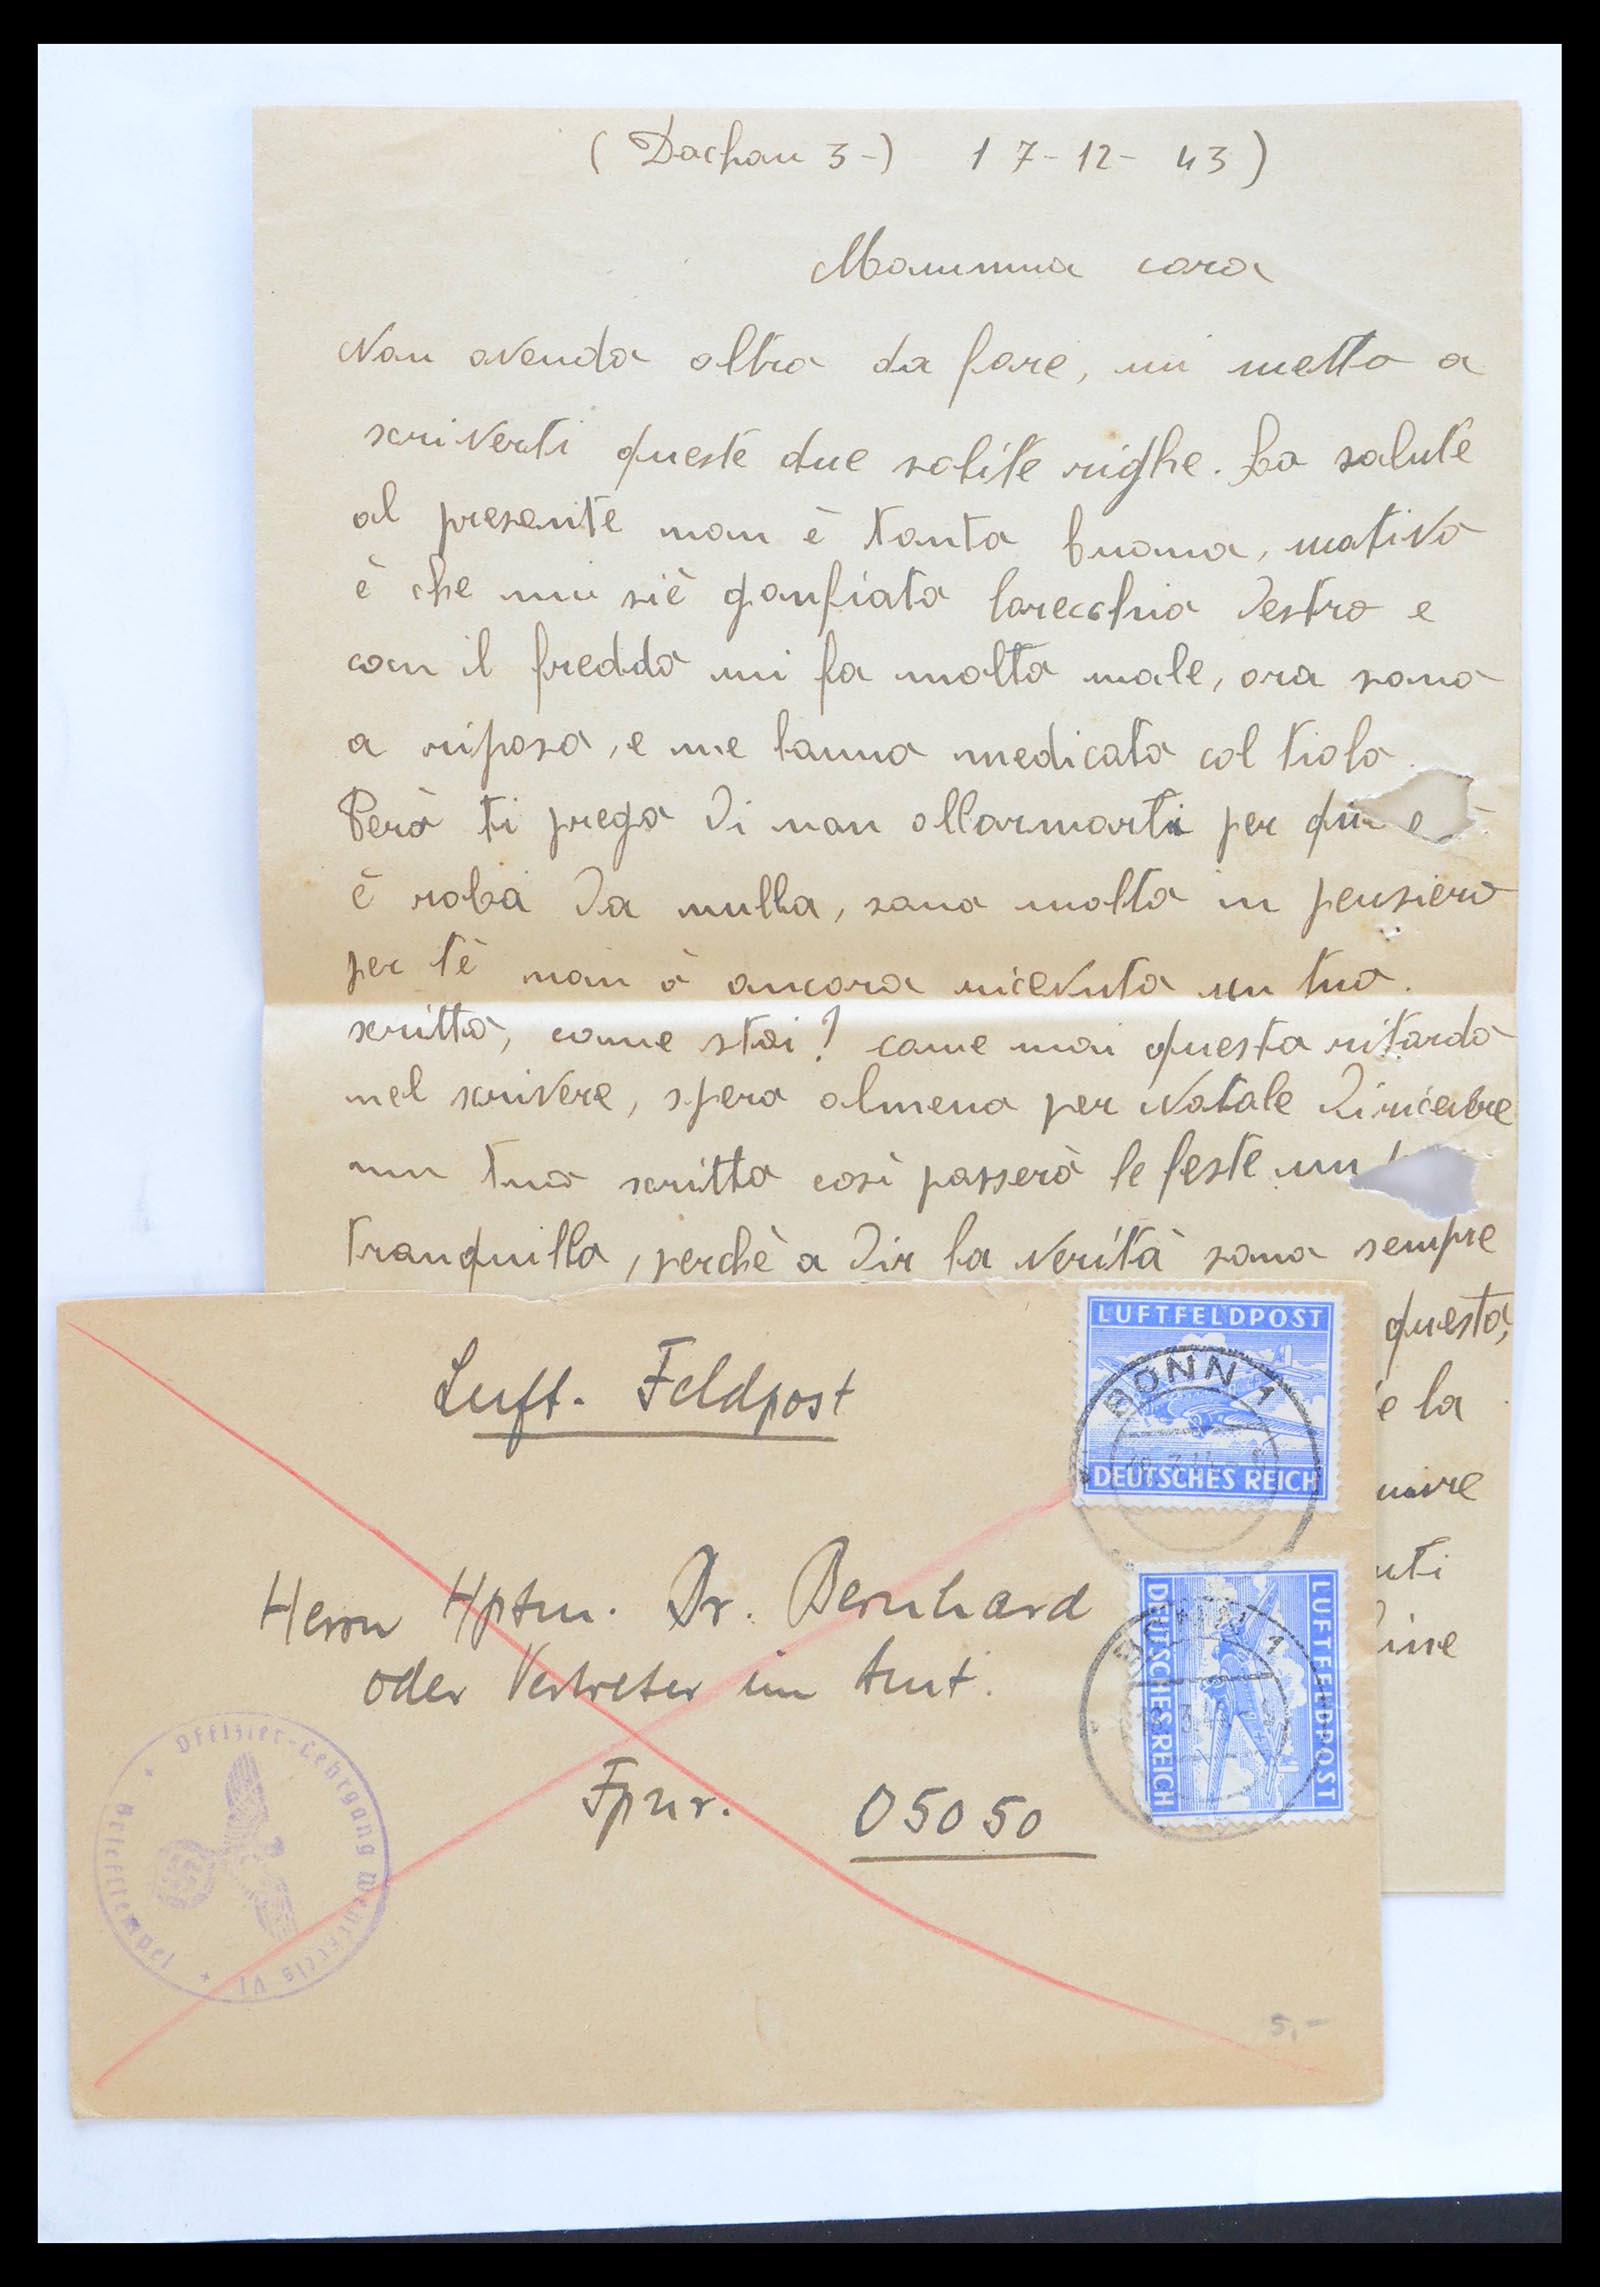 ( Dachau 3-) 17-12-43)
Mamma cara
Non avendo altro da fare, mi metto a
scriverti queste due solite righe. La salute
al presente non è tanto buona, motivo
è che mi siè gonfiato lorecchio destro e
con il freddo mi fa molto male, ora sono
a riposo, e me lanno medicato col tiolo.
Però ti prego di non allarmarti per
è roba da nulla, sono molto in pensiero
per tè non ò ancora ricevuto un tuo.
scritto, come stai? come mai questo ritardo
nel scrivere, spero almeno per Natale di ricevere
un tuo scritto così passerò le feste un
tranquillo, perchè a dir la verità sono sempre
questo,
e la
Luft. Feldpost
Herrn Hptm. Dr. Bernhard
oder Vertreter im Amt.
Fpnr. 05050
LUFTFELDPOST
DEUTSCHES REICH
BONN 1
LUFTFELDPOST
DEUTSCHES REICH
Offizier-Lehrgang Wehrkreis VI
Briefstempel
5,-